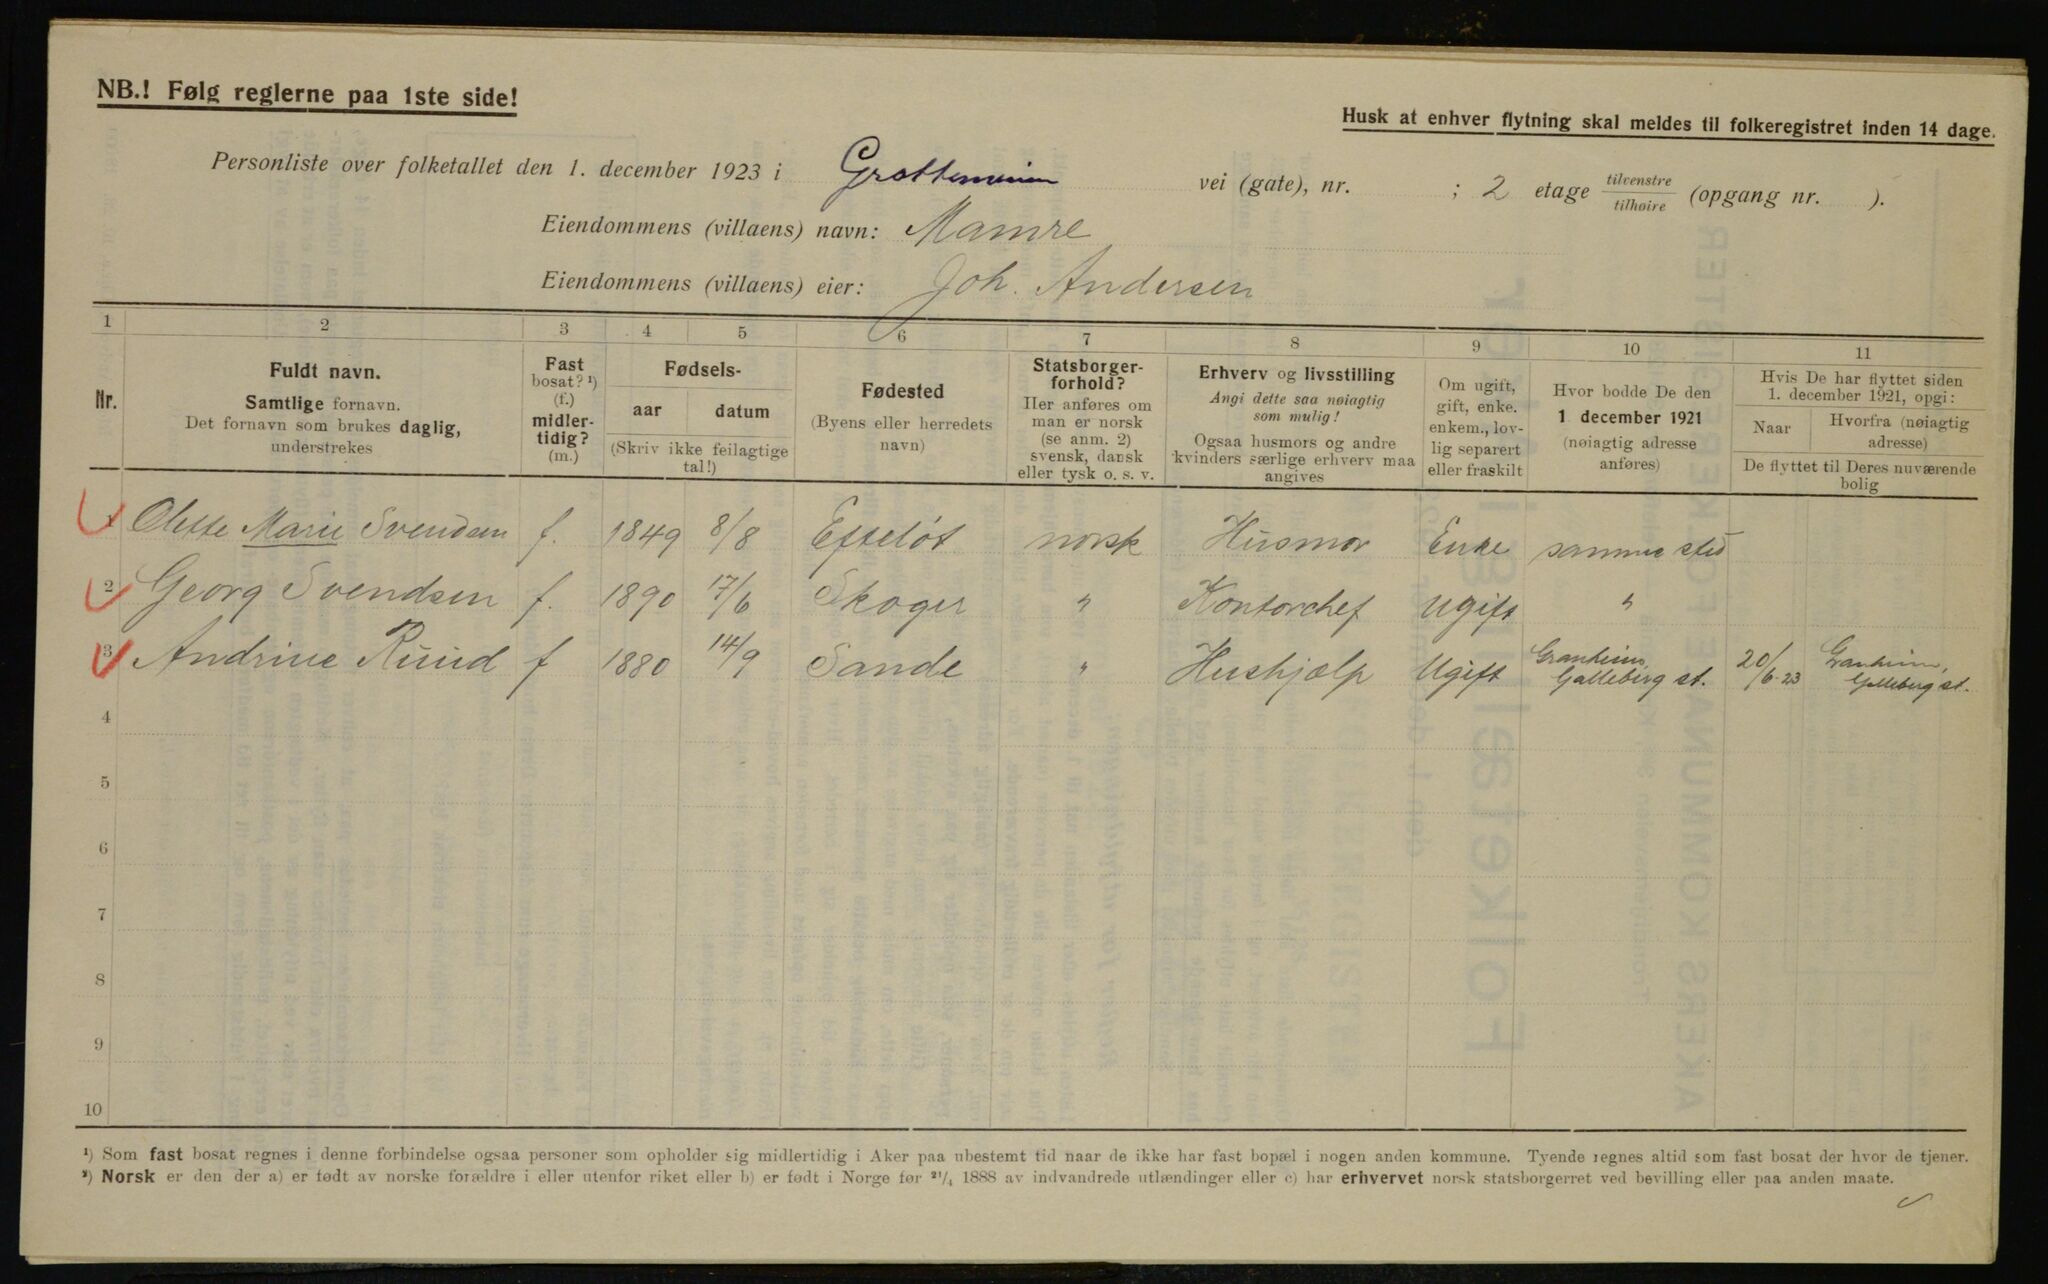 NB.! Følg reglerne paa 1ste side!
Husk at enhver flytning skal meldes til folkeregistret inden 14 dage.
Personliste over folketallet den 1. december 1923 i Grotteveien vei (gate), nr. ; 2 etage tilvenstre/tilhøire (opgang nr. ).
Eiendommens (villaens) navn: Mamre
Eiendommens (villaens) eier: Joh. Andersen
1 2 3 4 5 6 7 8 9 10 11
Nr.
Fuldt navn.
Samtlige fornavn.
Det fornavn som brukes daglig,
understrekes
Fast
bosat? ¹)
(f.)
midler-
tidig?
(m.)
Fødsels-
aar datum
(Skriv ikke feilagtige
tal!)
Fødested
(Byens eller herredets
navn)
Statsborger-
forhold?
Her anføres om
man er norsk
(se anm. 2)
svensk, dansk
eller tysk o. s. v.
Erhverv og livsstilling
Angi dette saa nøiagtig
som mulig!
Ogsaa husmors og andre
kvinders særlige erhverv maa
angives
Om ugift,
gift, enke.
enkem., lov-
lig separert
eller fraskilt
Hvor bodde De den
1 december 1921
(nøiagtig adresse
anføres)
Hvis De har flyttet siden
1. december 1921, opgi:
Naar Hvorfra (nøiagtig
adresse)
De flyttet til Deres nuværende
bolig
1 Olette Marie Svendsen f. 1849 8/8 Efteløt norsk Husmor Enke samme sted
2 Georg Svendsen f. 1890 17/6 Skoger " Kontorchef Ugift "
3 Andrine Ruud f 1880 14/9 Sande " Hushjælp Ugift Granheim, Galleberg st. 20/6-23 Granheim, Galleberg st.
4
5
6
7
8
9
10
¹) Som fast bosat regnes i denne forbindelse ogsaa personer som opholder sig midlertidig i Aker paa ubestemt tid naar de ikke har fast bopæl i nogen anden kommune. Tyende regnes altid som fast bosat der hvor de tjener.
²) Norsk er den der a) er født av norske forældre i eller utenfor riket eller b) er født i Norge før ²¹/₄ 1888 av indvandrede utlændinger eller c) har erhvervet norsk statsborgerret ved bevilling eller paa anden maate.